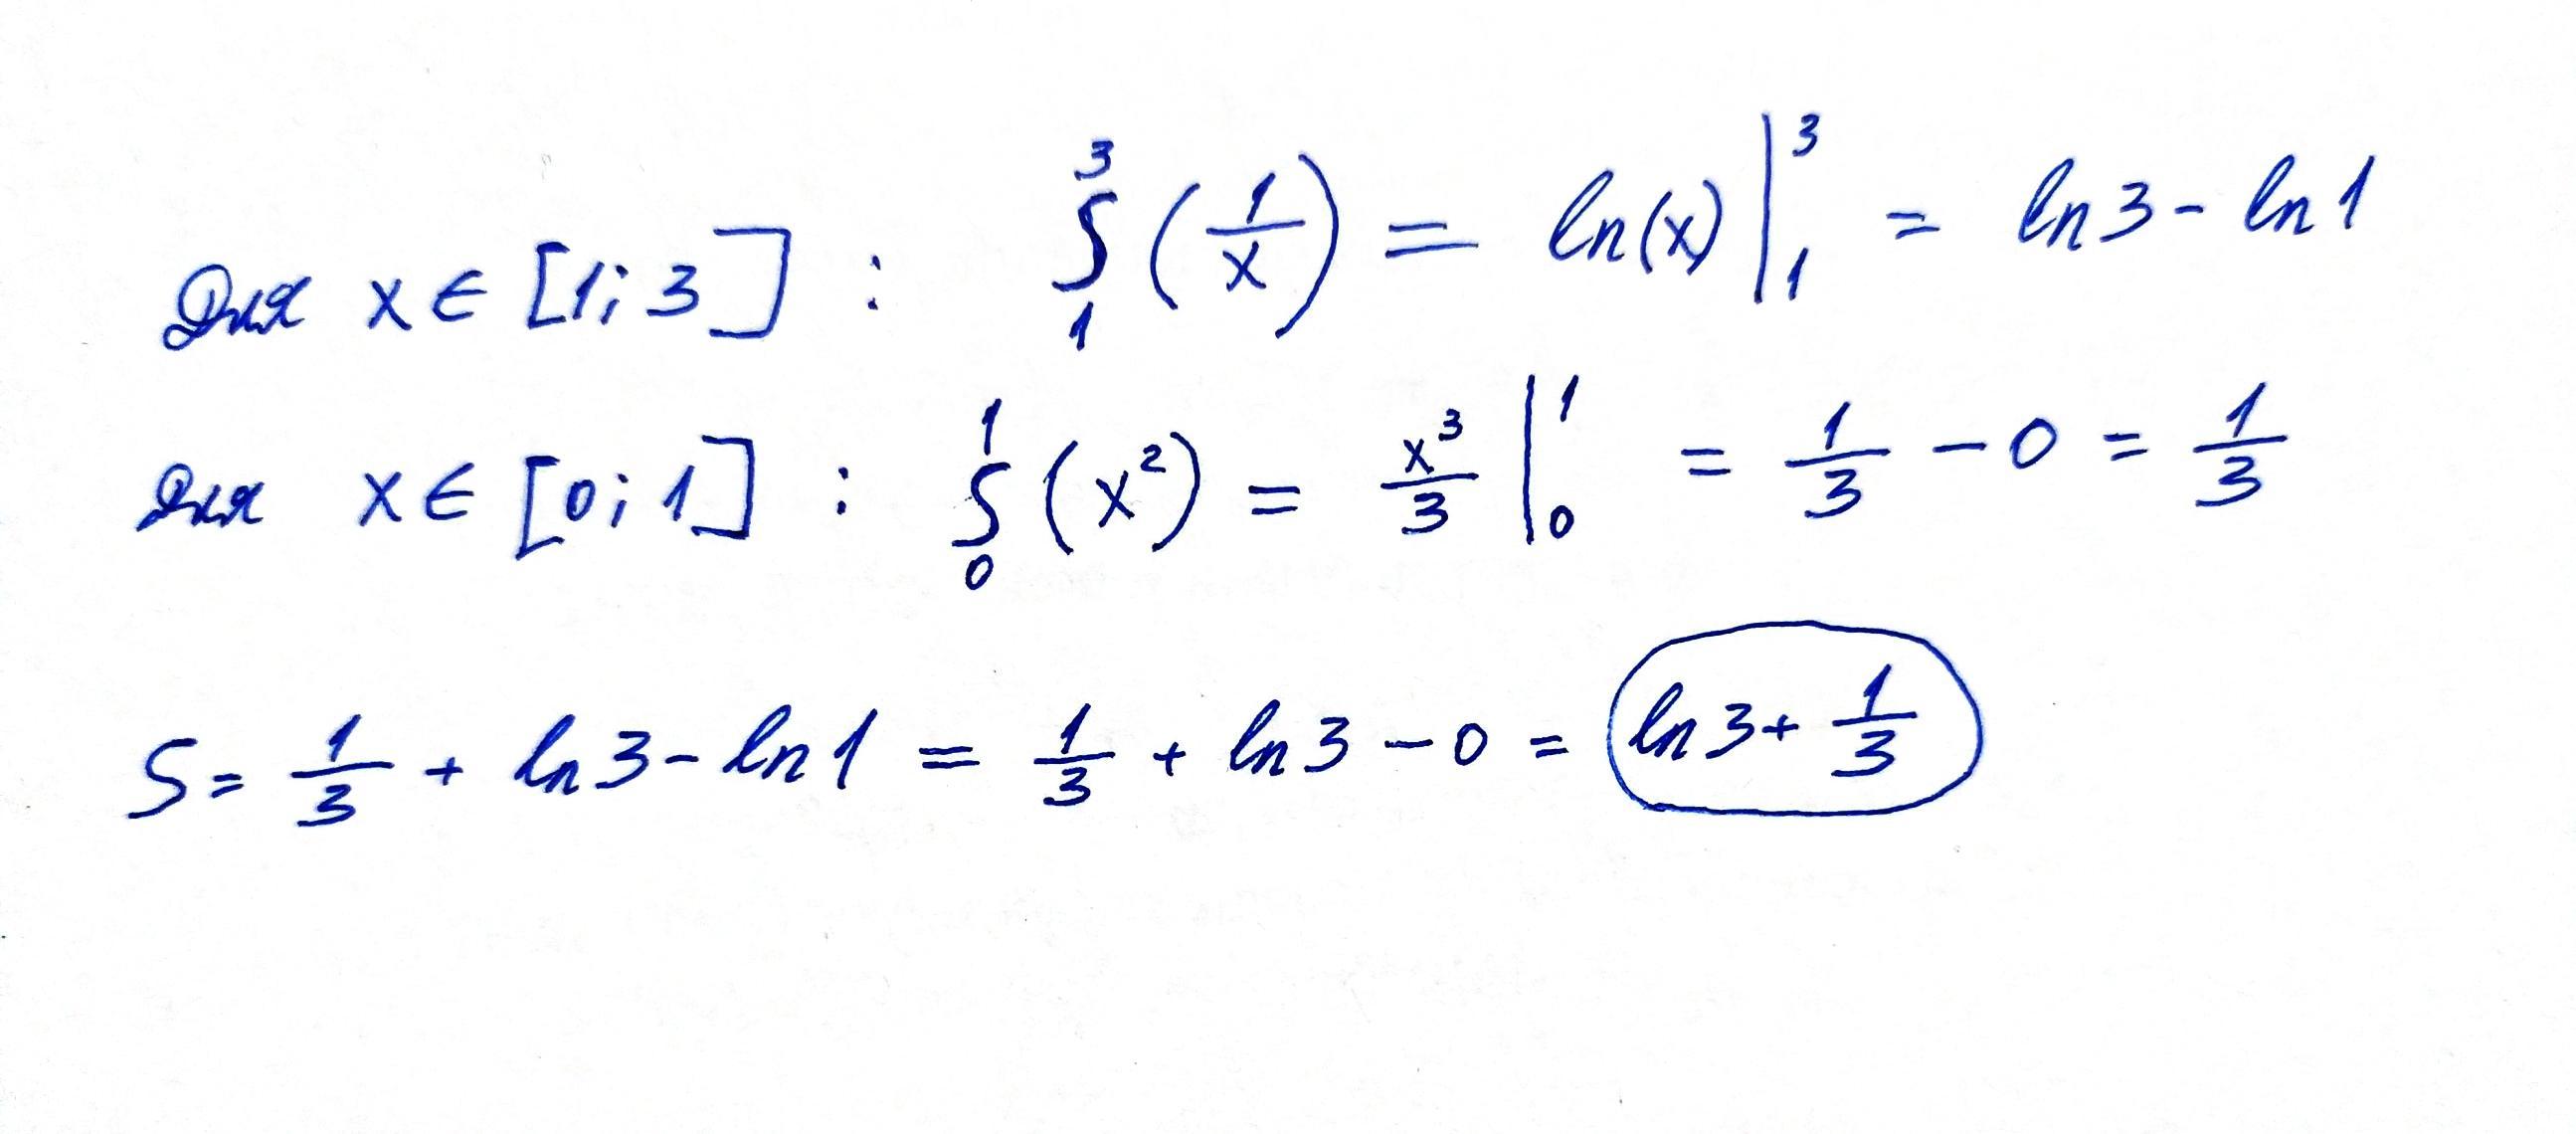 Для x ∈ [1; 3] : ∫₁³ (1/x) = ln(x) |₁³ = ln 3 - ln 1
для x ∈ [0; 1] : ∫₀¹ (x²) = x³/3 |₀¹ = 1/3 - 0 = 1/3
S = 1/3 + ln 3 - ln 1 = 1/3 + ln 3 - 0 = ln 3 + 1/3